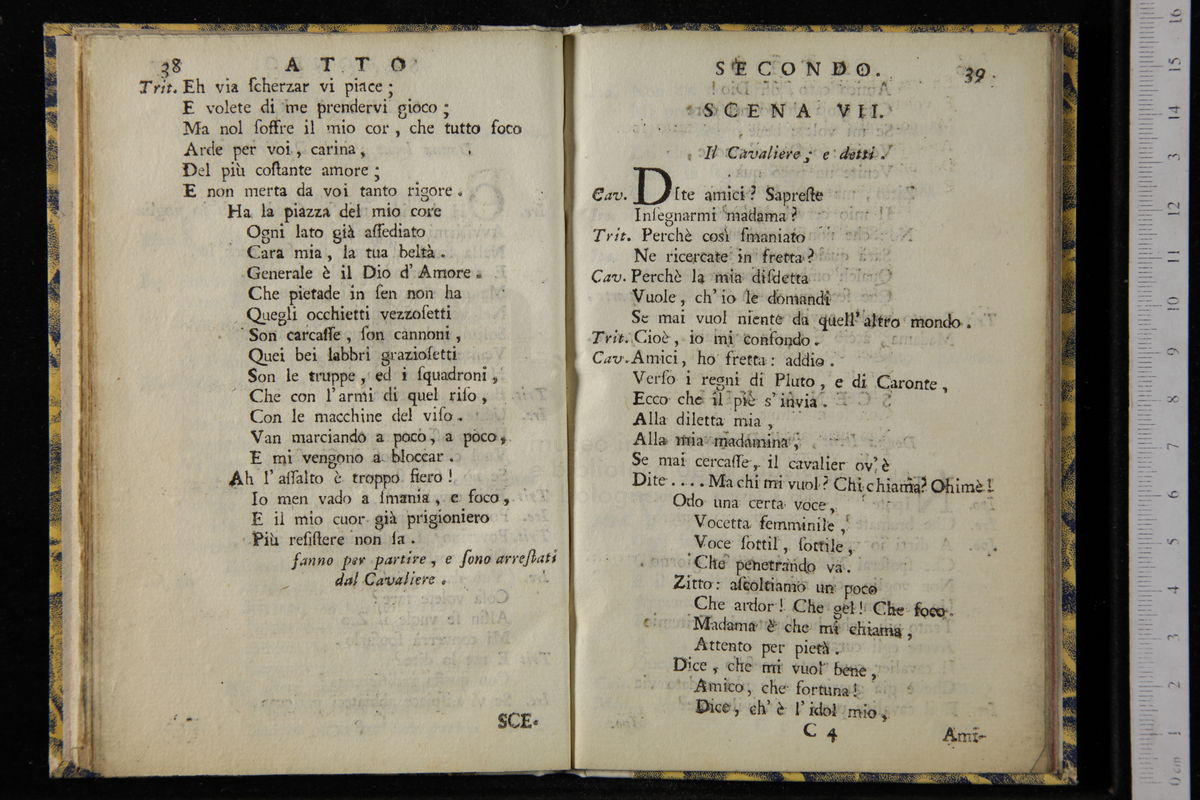 38 ATTO
Trit. Eh via ſcherzar vi piace ;
E volete di me prendervi gioco ;
Ma nol ſoffre il mio cor , che tutto foco
Arde per voi , carina ,
Del più coſtante amore ;
E non merta da voi tanto rigore .
Ha la piazza del mio core
Ogni lato già aſſediato
Cara mia , la tua beltà .
Generale è il Dio d' Amore .
Che pietade in ſen non ha
Quegli occhietti vezzoſetti
Son carcaſſe , ſon cannoni ,
Quei bei labbri grazioſetti
Son le truppe , ed i ſquadroni ,
Che con l'armi di quel riſo ,
Con le macchine del viſo .
Van marciando a poco , a poco ,
E mi vengono a bloccar .
Ah l' aſſalto è troppo fiero !
Io men vado a ſmania , e foco ,
E il mio cuor già prigioniero
Più reſiſtere non ſa .
fanno per partire , e ſono arreſtati
dal Cavaliere .
SCE-
SECONDO. 39
SCENA VII.
Il Cavaliere , e detti .
Cav. DIte amici ? Sapreſte
Inſegnarmi madama ?
Trit. Perchè così ſmaniato
Ne ricercate in fretta ?
Cav. Perchè la mia diſdetta
Vuole , ch' io le domandi
Se mai vuol niente da quell' altro mondo .
Trit. Cioè , io mi confondo .
Cav. Amici , ho fretta : addio .
Verſo i regni di Pluto , e di Caronte ,
Ecco che il piè s' invia .
Alla diletta mia ,
Alla mia madamina ,
Se mai cercaſſe , il cavalier ov' è
Dite . . . . Ma chi mi vuol ? Chi chiama ? Ohimè !
Odo una certa voce ,
Vocetta femminile ,
Voce ſottil , ſottile ,
Che penetrando va .
Zitto : aſcoltiamo un poco
Che ardor ! Che gel ! Che foco .
Madama è che mi chiama ,
Attento per pietà .
Dice , che mi vuol bene ,
Amico , che fortuna !
Dice , ch' è l' idol mio ,
C 4 Ami-
16
15
14
13
12
11
10
9
8
7
6
5
4
3
2
1
0 cm